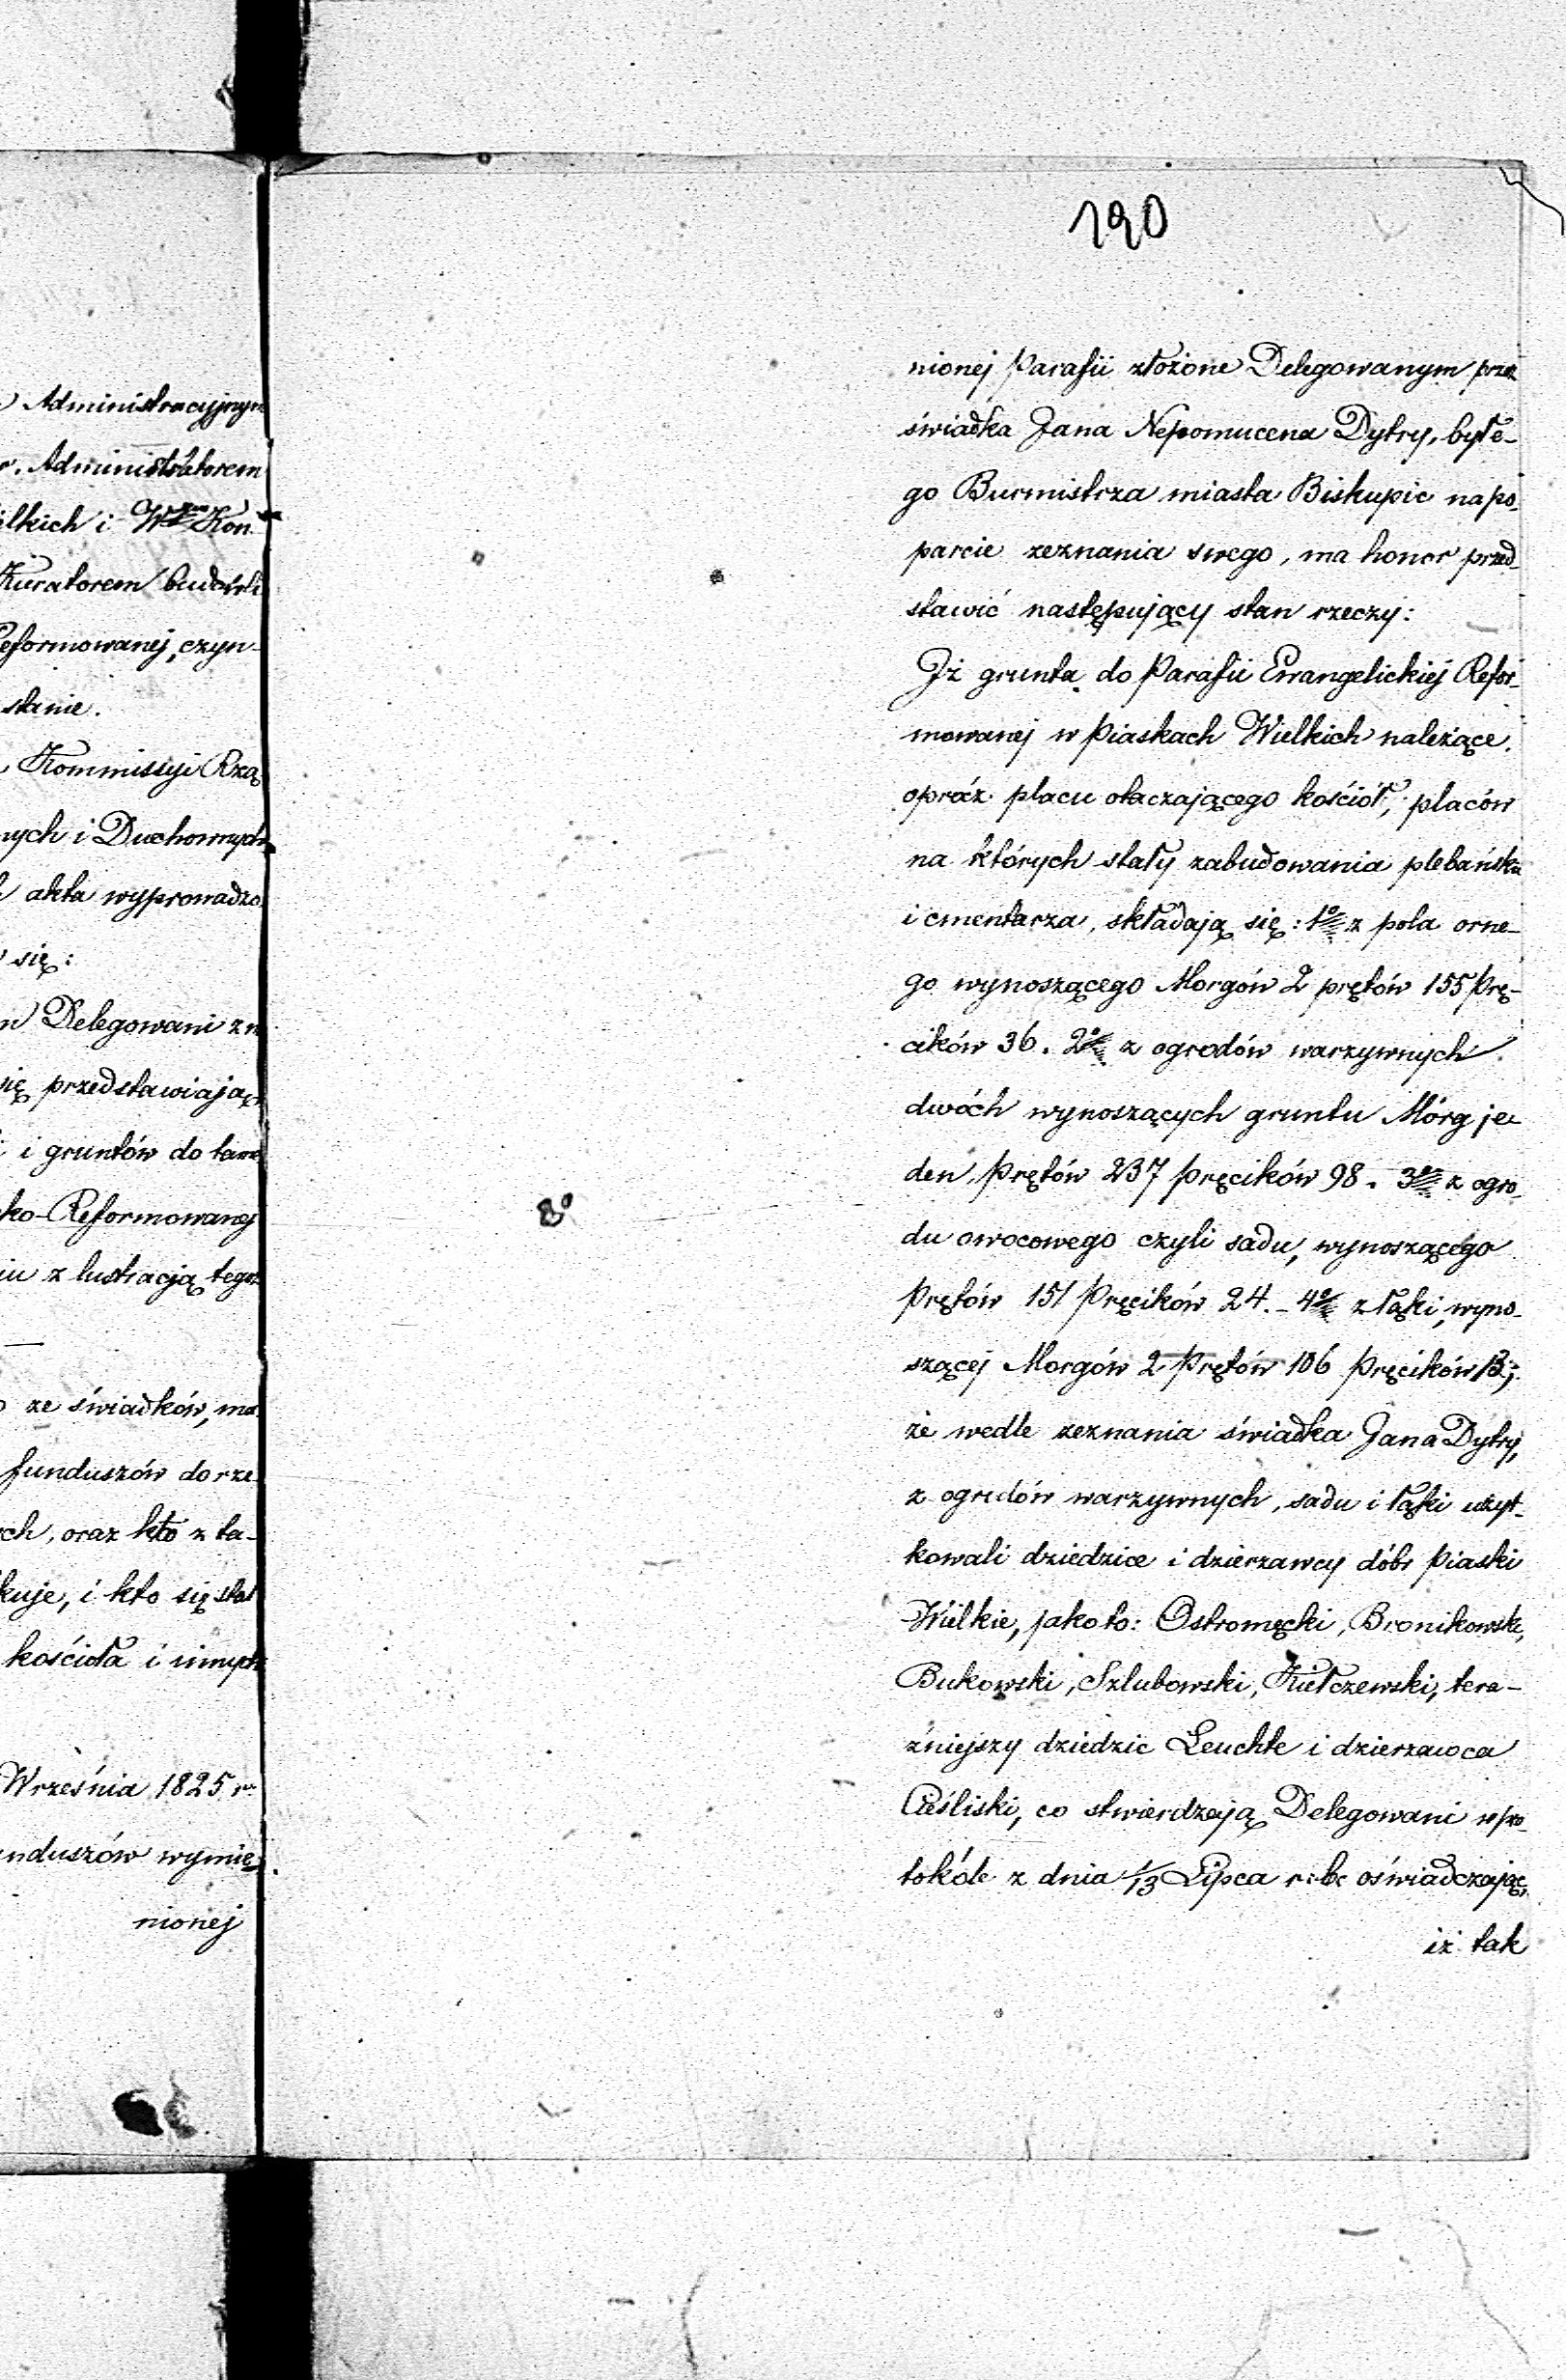 Administracyjnym
Administratorem
elkich i Wym Kon-
Kuratorem budowli
Reformowanej, czyn-
stanie.
Kommissyi Rzą
nych i Duchownych
akta wyprowadzo
się:
Delegowani zn
się przedstawiają
i gruntów do tam
ko-Reformowanej
iu z lustracją tegoż
ze świadków, ma
funduszów do rze
ch, oraz kto z ta-
kuje, i kto się stał
kościoła i innych
Września 1825 r.
unduszów wymie
nionej
190
nionej Parafii złożone Delegowanym prze
świadka Jana Nepomucena Dytry, byłe-
go Burmistrza miasta Biskupic na po-
parcie zeznania swego, ma honor przed-
stawić następujący stan rzeczy:
Iż grunta do Parafii Ewangelickiej Refor-
mowanej w Piaskach Wielkich należące,
opróz placu otaczającego kościół, placów
na których stały zabudowania plebańska
i cmentarza, składają się: 1o z pola orne-
go wynoszącego Morgów 2 prętów 155 Prę-
cików 36. 2o z ogrodów warzywnych
dwóch wynoszących gruntu Mórg je-
den, Prętów 237 pręcików 98. 3o z ogro-
8o
du owocowego czyli sadu, wynoszącego
Prętów 151 Pręcików 24. - 4o z łąki, wyno-
szącej Morgów 2 Prętów 106 Pręcików 13;
że wedle zeznania świadka Jana Dytry,
z ogrodów warzywnych, sadu i łąki użyt-
kowali dziedzice i dzierzawcy dóbr Piaski
Wielkie, jako to: Ostromęcki, Bronikowski,
Bukowski, Szlubowski, Kiełczewski, tera-
źniejszy dziedzic Leuchte i dzierzawca
Cieśliski, co stwierdzają Delegowani w pro-
tokóle z dnia 1/13 Lipca r: b: oświadczając,
iż tak